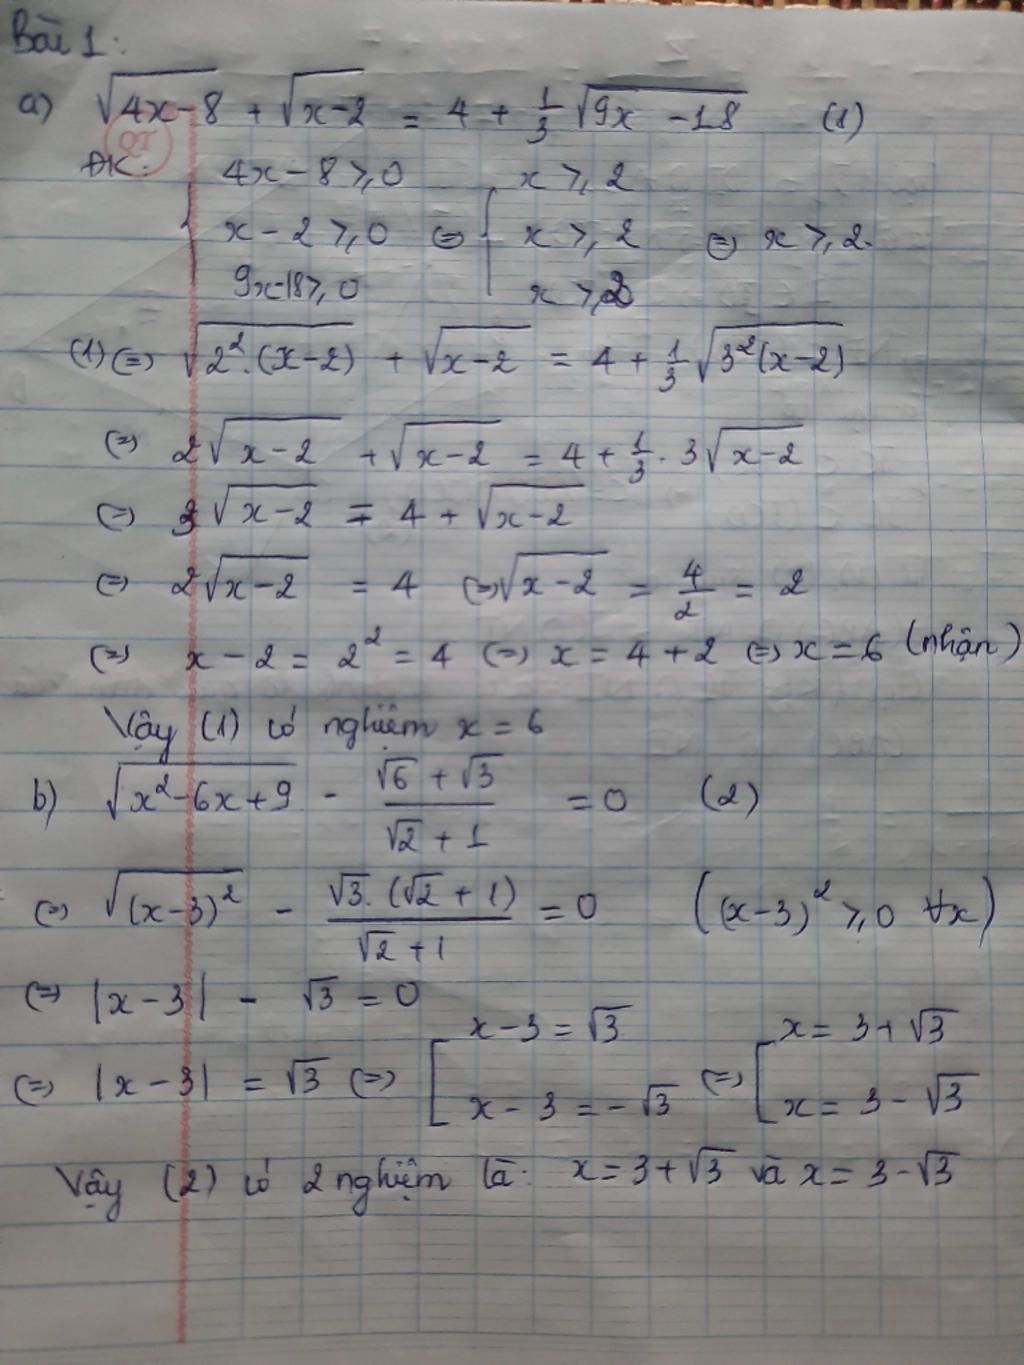 Bài 1:
a) √(4x-8) + √(x-2) = 4 + 1/3 √(9x-18) (1)
QT
ĐK: { 4x-8 ⩾ 0 ⇔ { x ⩾ 2
x-2 ⩾ 0 x ⩾ 2 ⇔ x ⩾ 2.
9x-18 ⩾ 0 x ⩾ 2
(1) ⇔ √(2².(x-2)) + √(x-2) = 4 + 1/3 √(3²(x-2))
⇔ 2√(x-2) + √(x-2) = 4 + 1/3 . 3√(x-2)
⇔ 3√(x-2) = 4 + √(x-2)
⇔ 2√(x-2) = 4 ⇔ √(x-2) = 4/2 = 2
⇔ x-2 = 2² = 4 ⇔ x = 4+2 ⇔ x = 6 (nhận)
Vậy (1) có nghiệm x = 6
b) √(x²-6x+9) - (√6 + √3)/(√2 + 1) = 0 (2)
⇔ √((x-3)²) - (√3.(√2+1))/(√2+1) = 0 ((x-3)² ⩾ 0 ∀x)
⇔ |x-3| - √3 = 0
⇔ |x-3| = √3 ⇔ [ x-3 = √3 ⇔ [ x = 3+√3
x-3 = -√3 x = 3-√3
Vậy (2) có 2 nghiệm là: x = 3+√3 và x = 3-√3